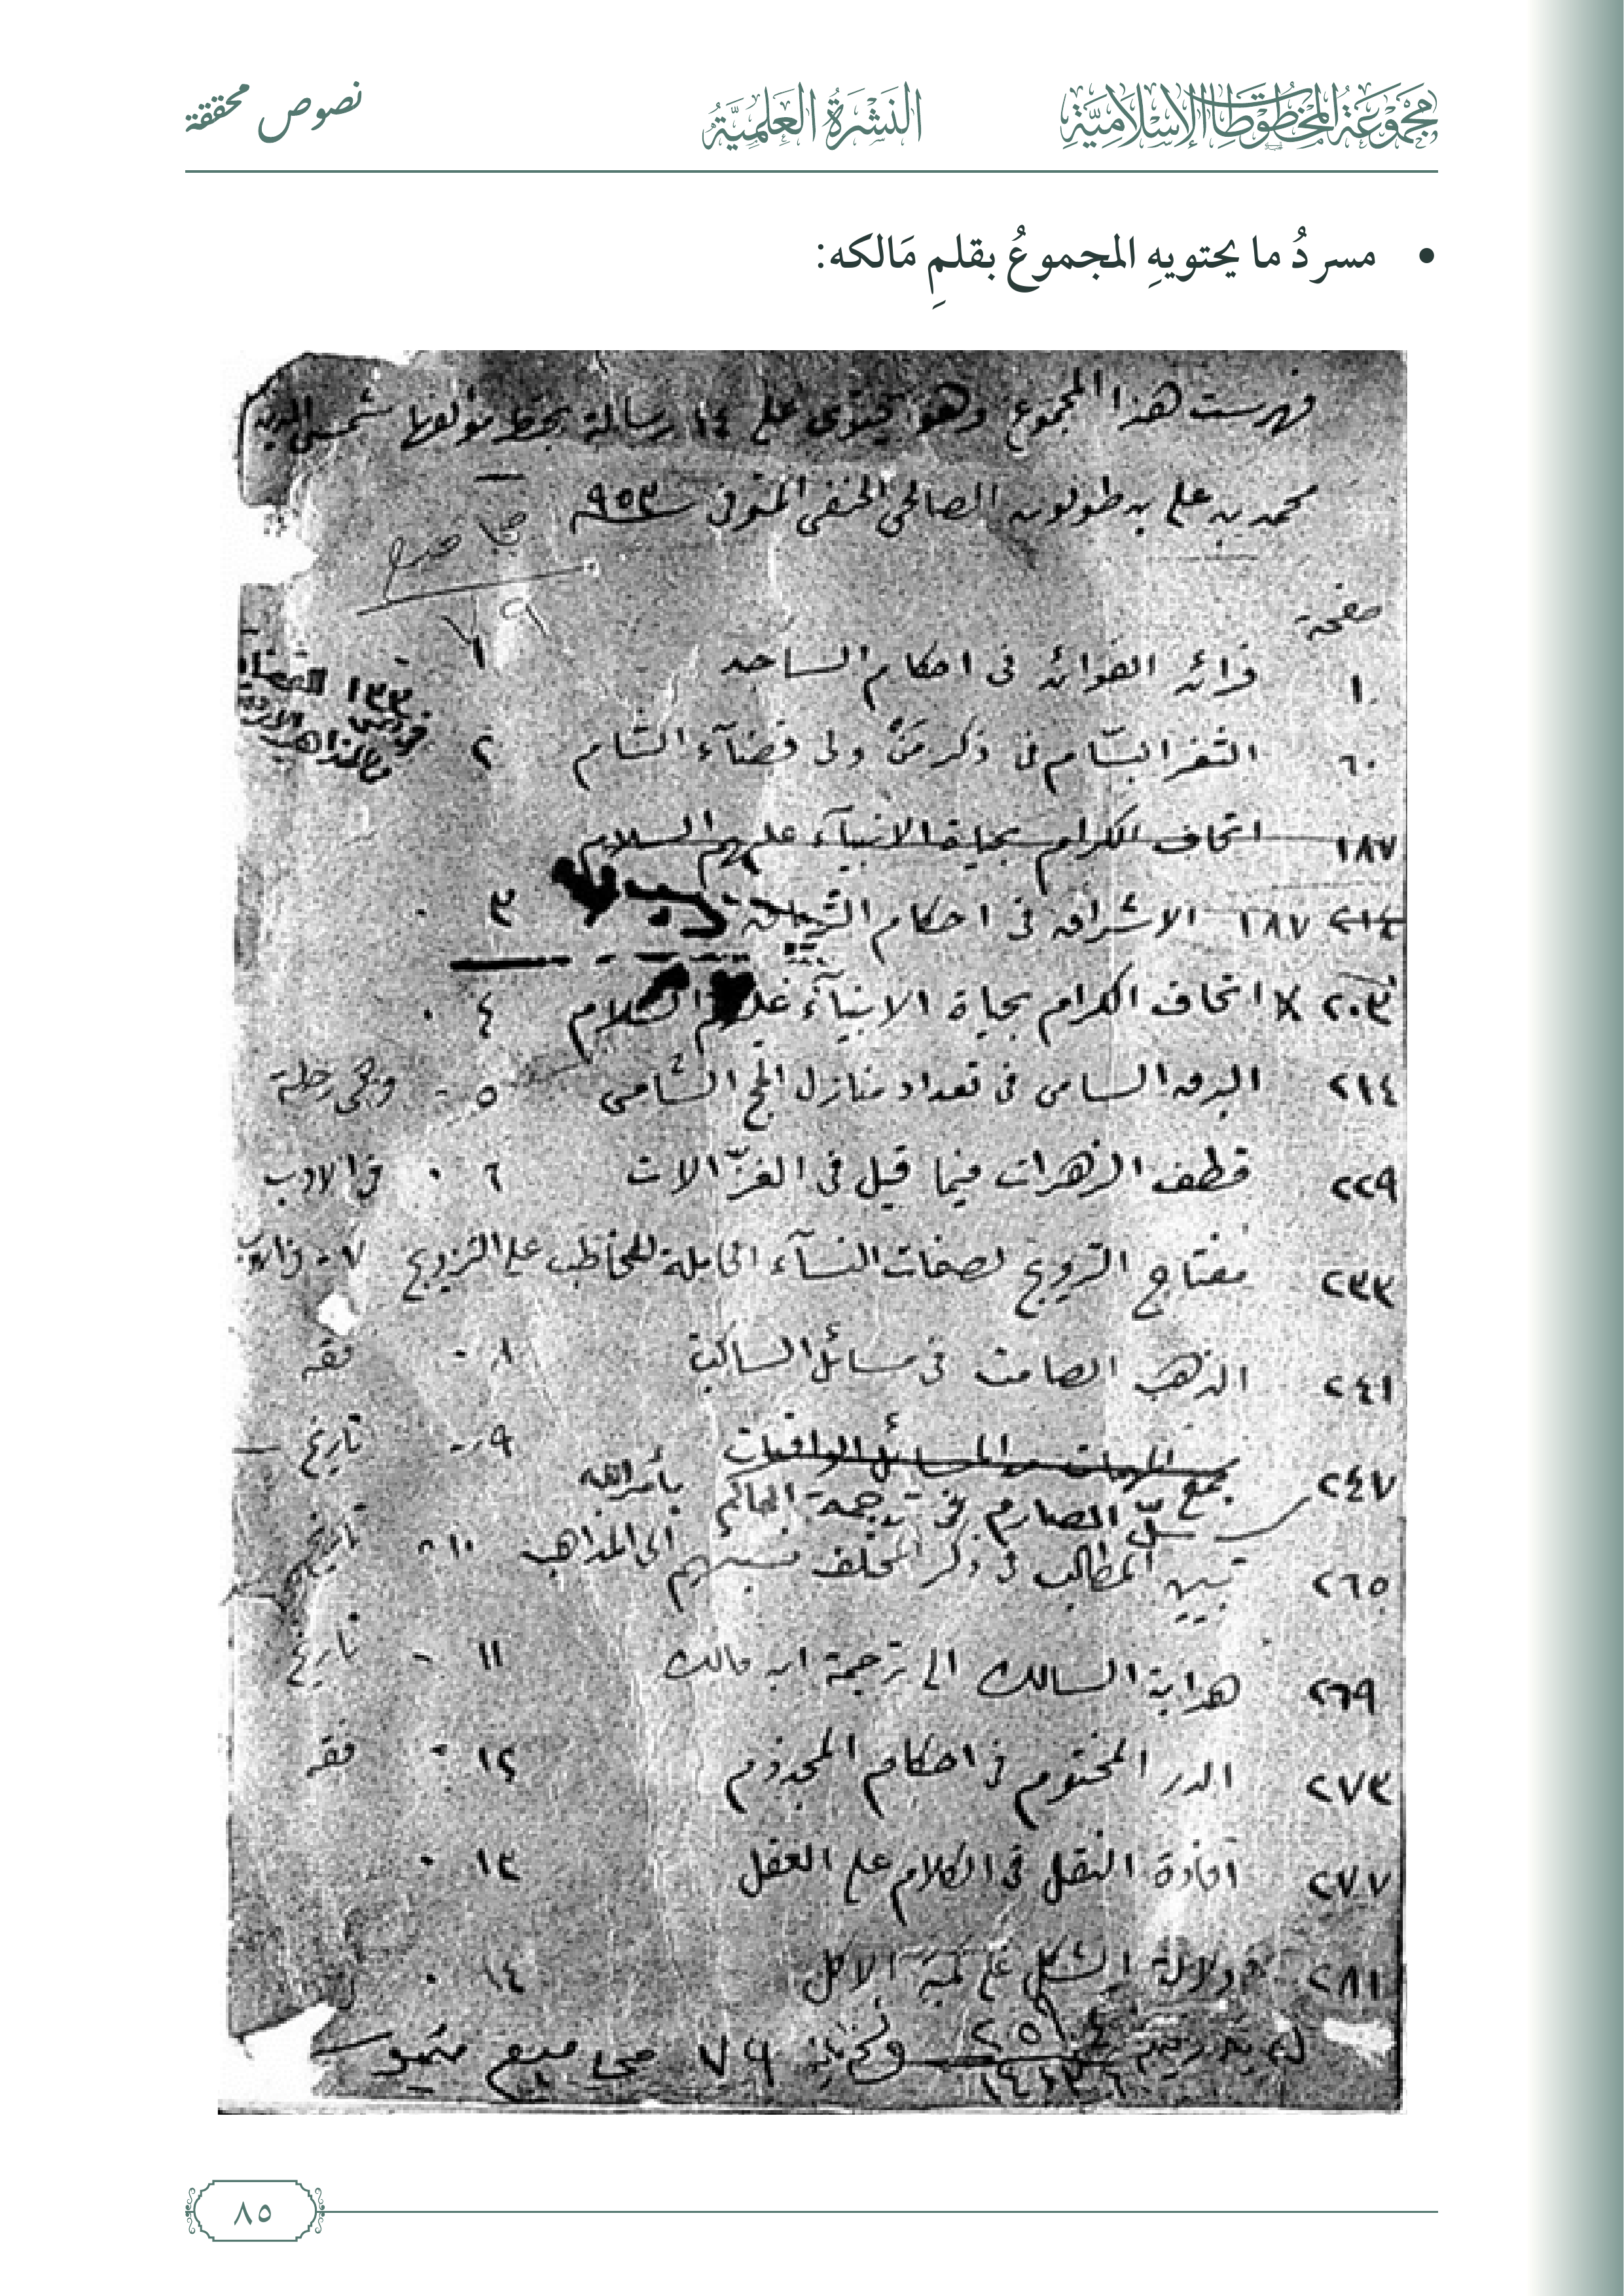 مجموعة المخطوطات الإسلامية
النشرة العلمية
نصوص محققة
• مسردُ ما يحتويهِ المجموعُ بقلمِ مَالكه:
فهرست هذا المجموع وهو يحتوى على ١٤ رسالة بخط مؤلفها شمس الدين
محمد بن علي بن طولون الصالحى الحنفى المتوفى سـ ٩٥٣
صفحة
١ فرائد الفوائد فى احكام المساجد ١
٦٠ الثغر البسّام فى ذكر مَنْ ولى قضآء الشام ٢
١٨٧ اتحاف الكرام بحياة الانبيآء عليهم السلام
٢١٤ ١٨٧ الاشراق فى احكام ٣
٢٠٣ X اتحاف الكرام بحياة الانبيآء عليهم السلام ٤
٢١٤ البرق السامى فى تعداد منازل الحج الشامى ٥ - رحلة
٢٢٩ قطف الزهرات فيما قيل فى الغزّالات ٦ فى الادب
٢٣٣ مفتاح التزويج لصفات النسآء الحاملة للخاطب على التزويج ٧ -
٢٤١ الذهب الصامت فى مسائل الساكت ٨ - فقه
٢٤٧ ٩ - تاريخ
سلّ الصارم فى ترجمة الحاكم بأمر الله
٢٦٥ تبيين المطالب فى ذكر الخلف نسبتهم الى المذاهب ١٠ - تاريخ
٢٦٩ هداية السالك الى ترجمة ابن مالك ١١ - تاريخ
٢٧٣ الدر المختوم فى احكام المجذوم ١٢ - فقه
٢٧٧ افادة النقل فى الكلام على العقل ١٣
٢٨١ دلالة الشكل على كمية الاكل ١٤
٧٩ مجاميع تيمور
٨٥